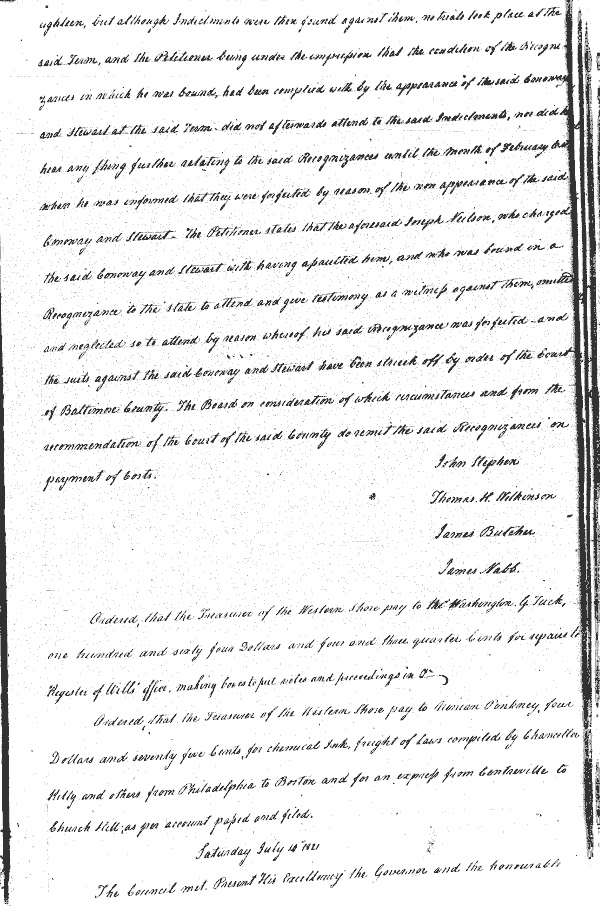 eighteen, but although Indictments were then found against them, no trials took place at the
said Term, and the Petitioner being under the impression that the condition of the Recogni-
zances in which he was bound, had been complied with by the appearance of the said Conoway
and Stewart at the said Term did not afterwards attend to the said Indictments, nor did he
hear any thing further relating to the said Recognizances until the month of February
when he was informed that they were forfeited by reason of the non appearance of the said
Conoway and Stewart. The Petitioner states that the aforesaid Joseph Neilson, who charged
the said Conoway and Stewart with having assaulted him, and who was bound in a
Recognizance to the state to attend and give testimony as a witness against them, omitted
and neglected so to attend by reason whereof his said Recognizance was forfeited and
the suits against the said Conoway and Stewart have been struck off by order of the Court
of Baltimore County. The Board on consideration of which circumstances and from the
recommendation of the Court of the said County do remit the said Recognizances on
payment of Costs.
John Stephen
Thomas H. Wilkinson
James Butcher
James Nabb.
Ordered, that the Treasurer of the Western Shore pay to Washington G. Tuck,
one hundred and sixty four Dollars and four and three quarter Cents for repairs to
Register of Wills' office, making boxes to put votes and proceedings in &c
Ordered, that the Treasurer of the Western Shore pay to Ninian Pinkney, four
Dollars and seventy five Cents, for chemical Ink, freight of Laws compiled by Chancellor
Kilty and others from Philadelphia to Boston and for an express from Centreville to
Church Hill, as per account passed and filed.
Saturday July 14 1821
The Council met. Present His Excellency the Governor and the honourable